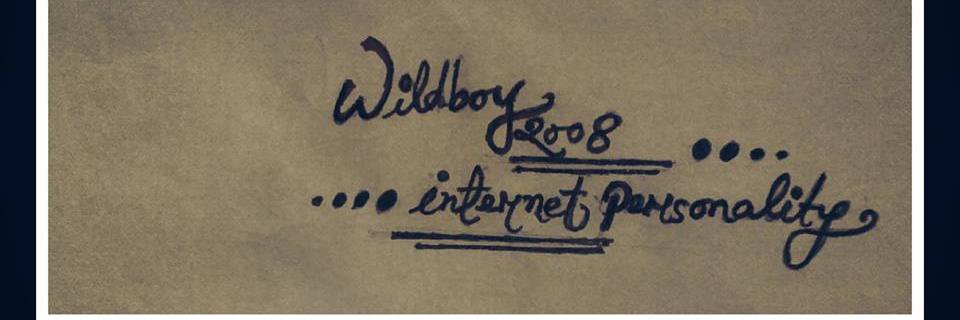 Wildboy
2008 ....
.... internet personality